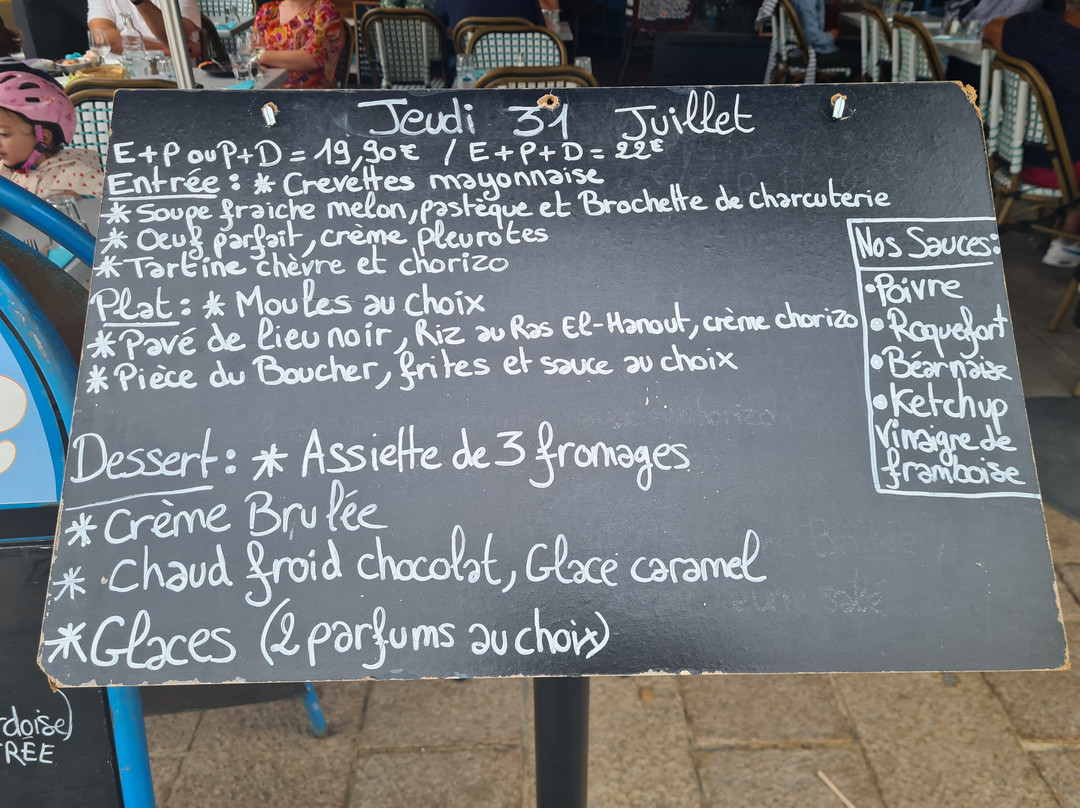 Jeudi 31 Juillet
E+P ou P+D = 19,90€ / E+P+D = 22€
Entrée : * Crevettes mayonnaise
* Soupe fraiche melon, pastèque et Brochette de charcuterie
* Oeuf parfait, crème pleurotes
* Tartine chèvre et chorizo
Plat : * Moules au choix
* Pavé de lieu noir, Riz au Ras El-Hanout, crème chorizo
* Pièce du Boucher, frites et sauce au choix
Nos Sauces :
• Poivre
• Roquefort
• Béarnaise
• Ketchup
vinaigre de
framboise
Dessert : * Assiette de 3 fromages
* Crème Brulée
* Chaud froid chocolat, Glace caramel
* Glaces (2 parfums au choix)
rdoise)
RÉE